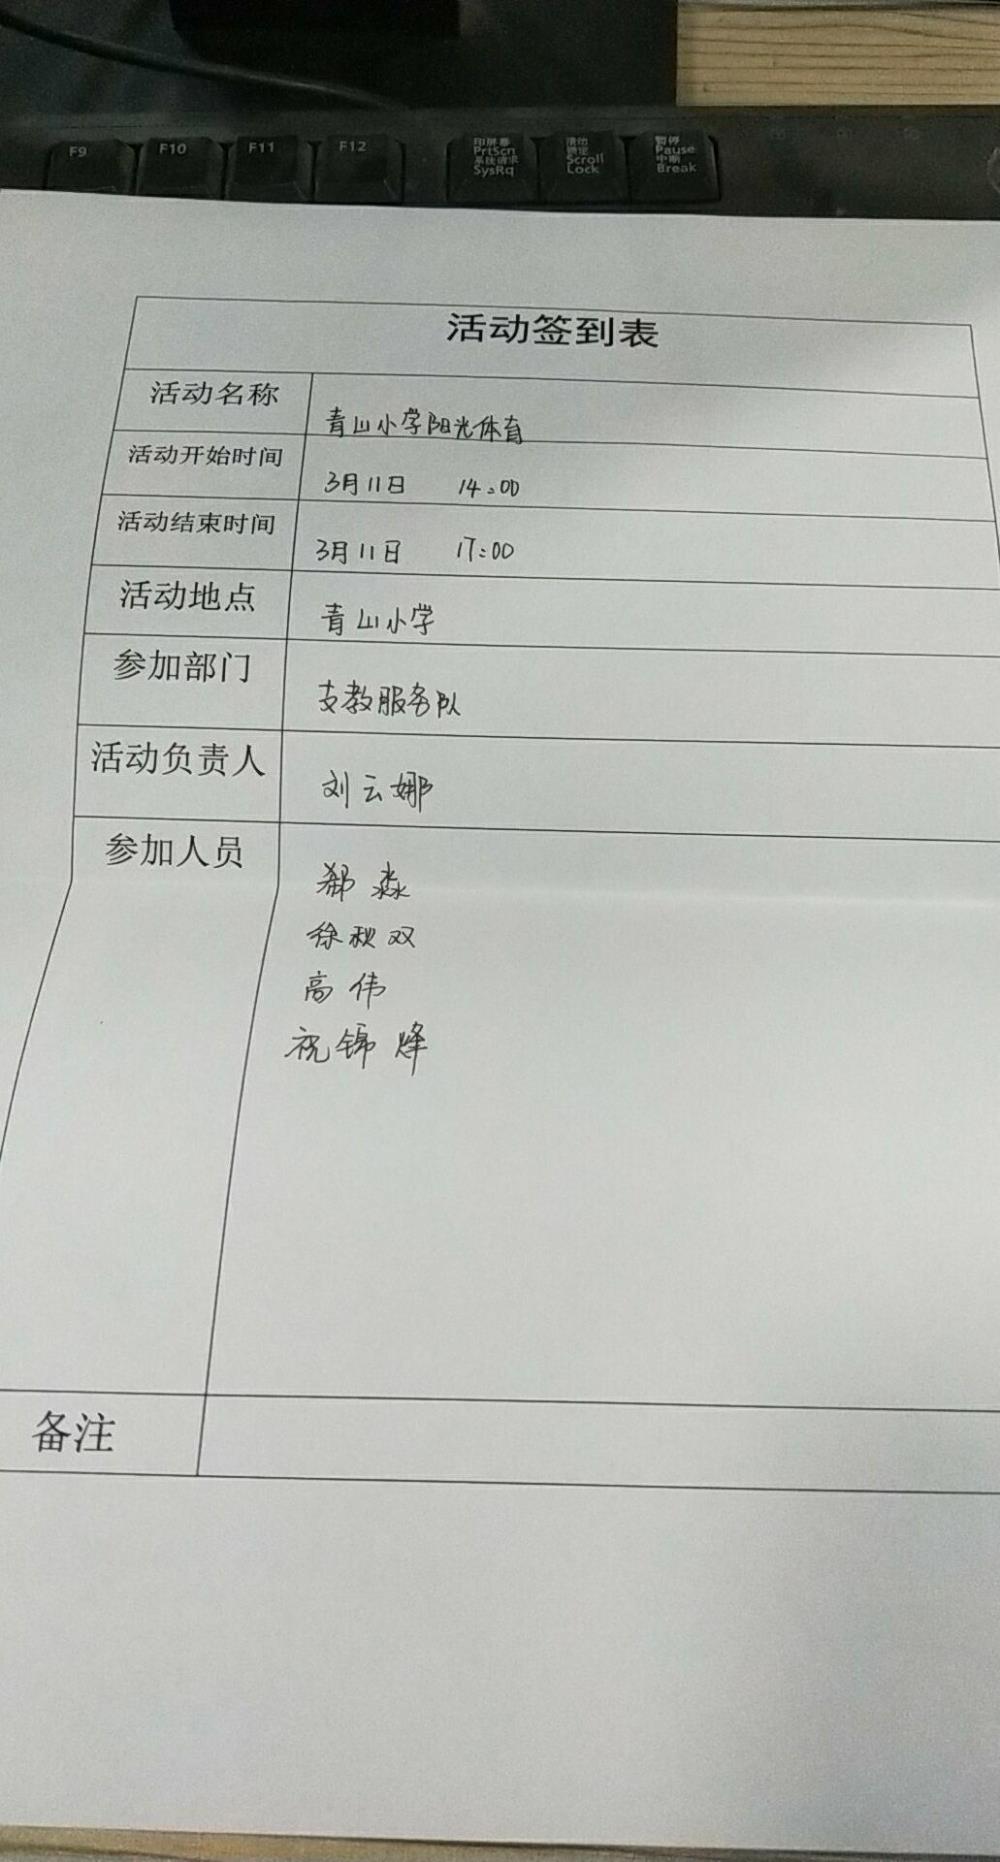 F9 F10 F11 F12
印屏幕 PrtScn 系统请求 SysRq
滚动锁定 Scroll Lock
暂停 Pause 中断 Break
活动签到表
活动名称 青山小学阳光体育
活动开始时间 3月11日 14:00
活动结束时间 3月11日 17:00
活动地点 青山小学
参加部门 支教服务队
活动负责人 刘云娜
参加人员 郗淼
徐秋双
高伟
祝锦烽
备注